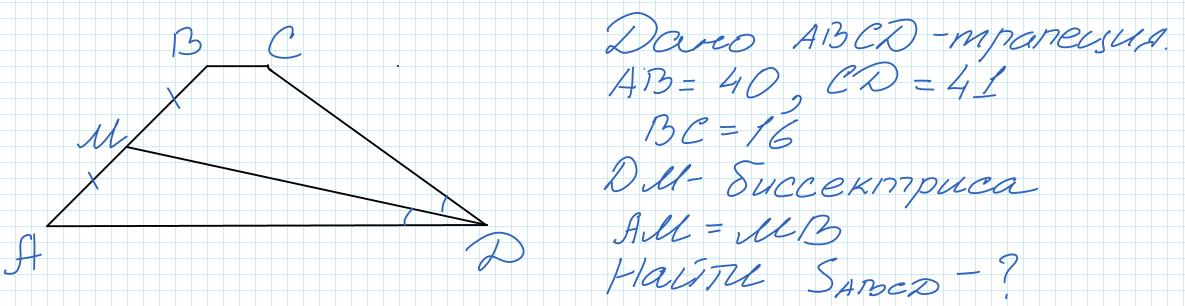 B C
M
A D
Дано ABCD-трапеция.
AB = 40, CD = 41
BC = 16
DM- биссектриса
AM = MB
Найти SABCD - ?